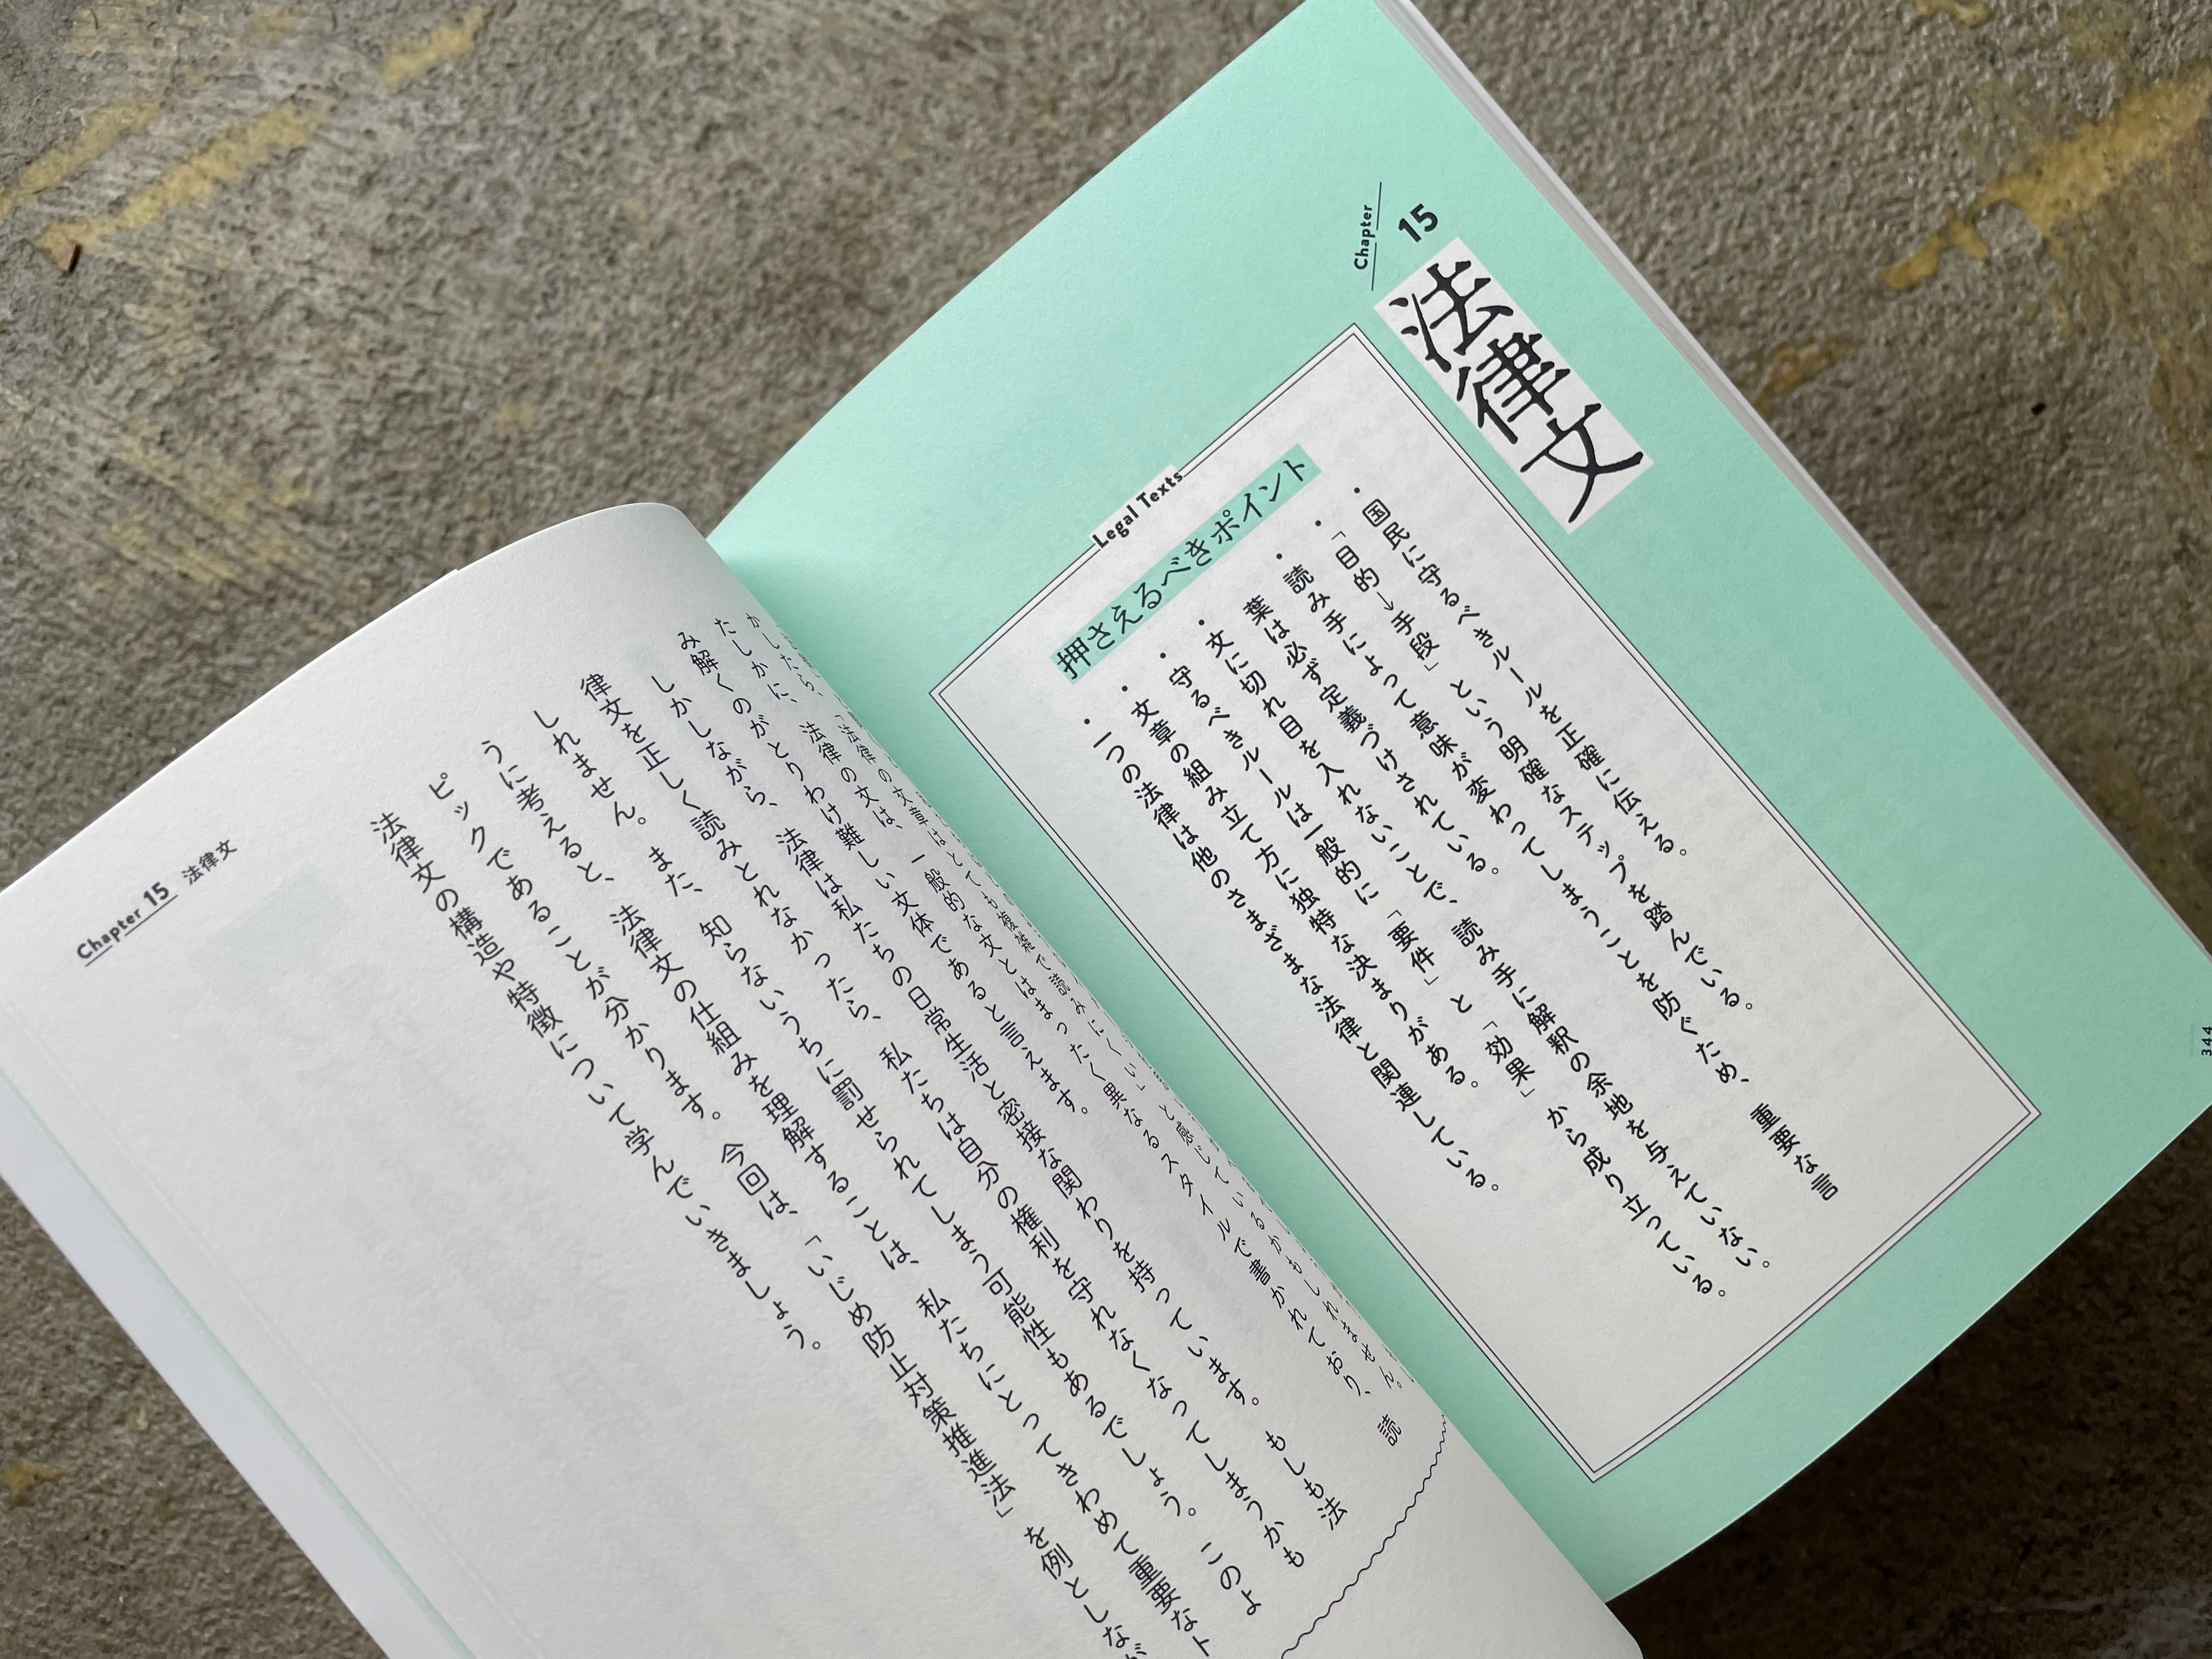 Chapter
15
法律文
Legal Texts
押さえるべきポイント
・国民に守るべきルールを正確に伝える。
・「目的→手段」という明確なステップを踏んでいる。
・読み手によって意味が変わってしまうことを防ぐため、重要な言
葉は必ず定義づけされている。
・文に切れ目を入れないことで、読み手に解釈の余地を与えていない。
・守るべきルールは一般的に「要件」と「効果」から成り立っている。
・文章の組み立て方に独特な決まりがある。
・一つの法律は他のさまざまな法律と関連している。
344
かしたら、「法律の文章はとても複雑で読みにくい」と感じているかもしれません。
たしかに、法律の文は、一般的な文とはまったく異なるスタイルで書かれており、読
み解くのがとりわけ難しい文体であると言えます。
しかしながら、法律は私たちの日常生活と密接な関わりを持っています。もしも法
律文を正しく読みとれなかったら、私たちは自分の権利を守れなくなってしまうかも
しれません。また、知らないうちに罰せられてしまう可能性もあるでしょう。このよ
うに考えると、法律文の仕組みを理解することは、私たちにとってきわめて重要なト
ピックであることが分かります。今回は、「いじめ防止対策推進法」を例としなが
法律文の構造や特徴について学んでいきましょう。
Chapter 15 法律文